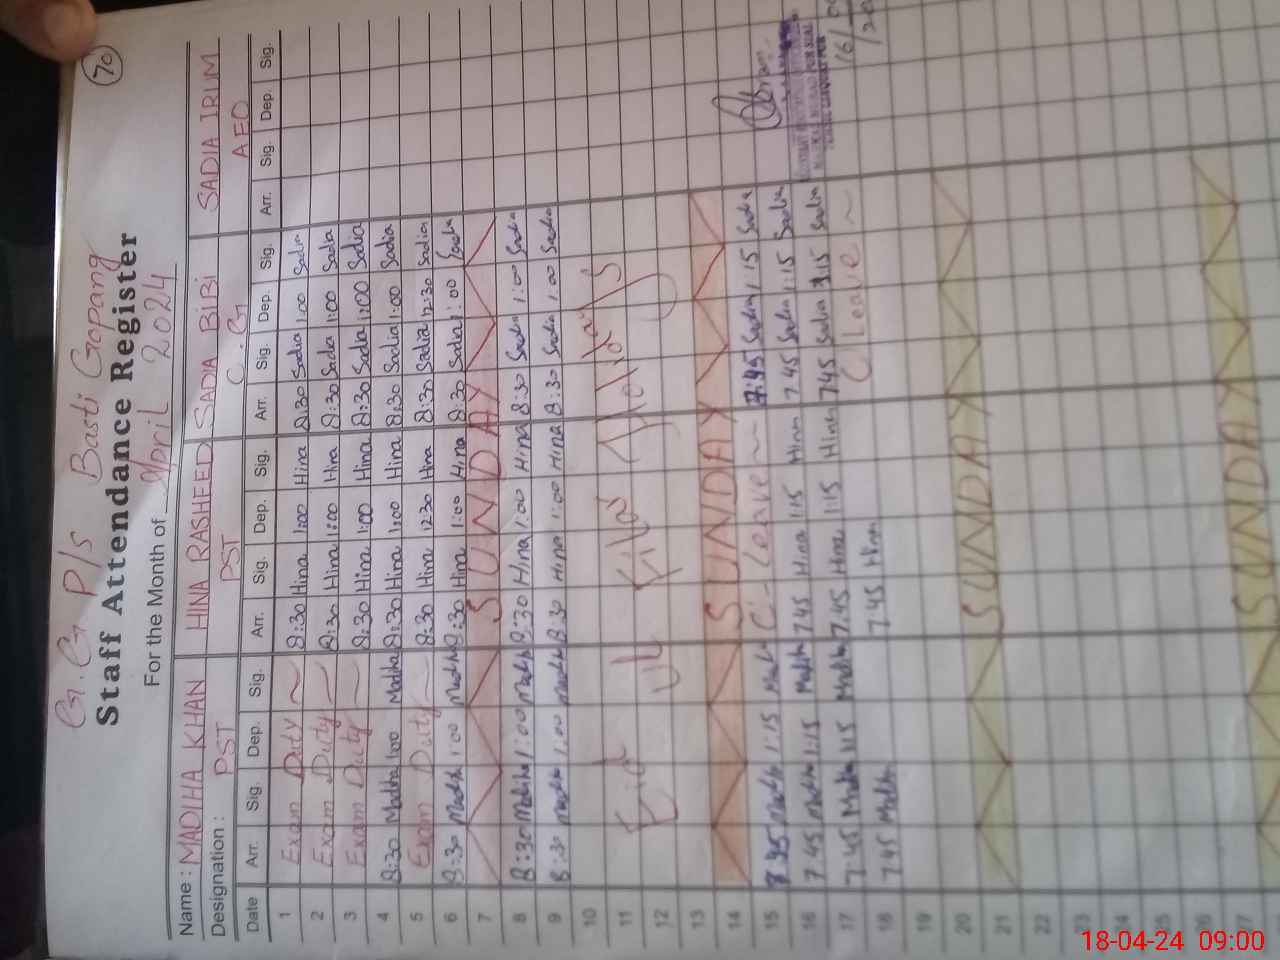 70
G.G P/S Basti Gopang
Staff Attendance Register
For the Month of April 2024
Name : MADIHA KHAN HINA RASHEED SADIA BIBI SADIA IRUM
Designation : PST PST C.G AEO
Date Arr. Sig. Dep. Sig. Arr. Sig. Dep. Sig. Arr. Sig. Dep. Sig. Arr. Sig. Dep. Sig.
1 Exam Duty 8:30 Hina 1:00 Hina 8:30 Sadia 1:00 Sadia
2 Exam Duty 8:30 Hina 1:00 Hina 8:30 Sadia 1:00 Sadia
3 Exam Duty 8:30 Hina 1:00 Hina 8:30 Sadia 1:00 Sadia
4 8:30 Madiha 1:00 Madiha 8:30 Hina 1:00 Hina 8:30 Sadia 1:00 Sadia
5 Exam Duty 8:30 Hina 12:30 Hina 8:30 Sadia 12:30 Sadia
6 8:30 Madiha 1:00 Madiha 8:30 Hina 1:00 Hina 8:30 Sadia 1:00 Sadia
7 SUNDAY
8 8:30 Madiha 1:00 Madiha 8:30 Hina 1:00 Hina 8:30 Sadia 1:00 Sadia
9 8:30 Madiha 1:00 Madiha 8:30 Hina 1:00 Hina 8:30 Sadia 1:00 Sadia
10
11 Eid ul Fitar Holidays
12
13
14 SUNDAY
15 Madiha 1:15 Madiha C-Leave 7:45 Sadia 1:15 Sadia
16 7:45 Madiha 1:15 Madiha 7:45 Hina 1:15 Hina 7:45 Sadia 1:15 Sadia
17 7:45 Madiha 1:15 Madiha 7:45 Hina 1:15 Hina 7:45 Sadia 1:15 Sadia
18 7:45 Madiha 7:45 Hina C Leave
19
20
21 SUNDAY
22
23
24
25
26
27 SUNDAY
18-04-24 09:00